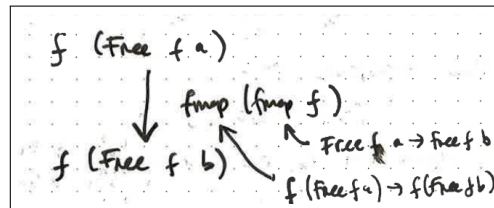 f (Free f a)
fmap (fmap f)
Free f a → Free f b
f (Free f b)
f (Free f a) → f (Free f b)